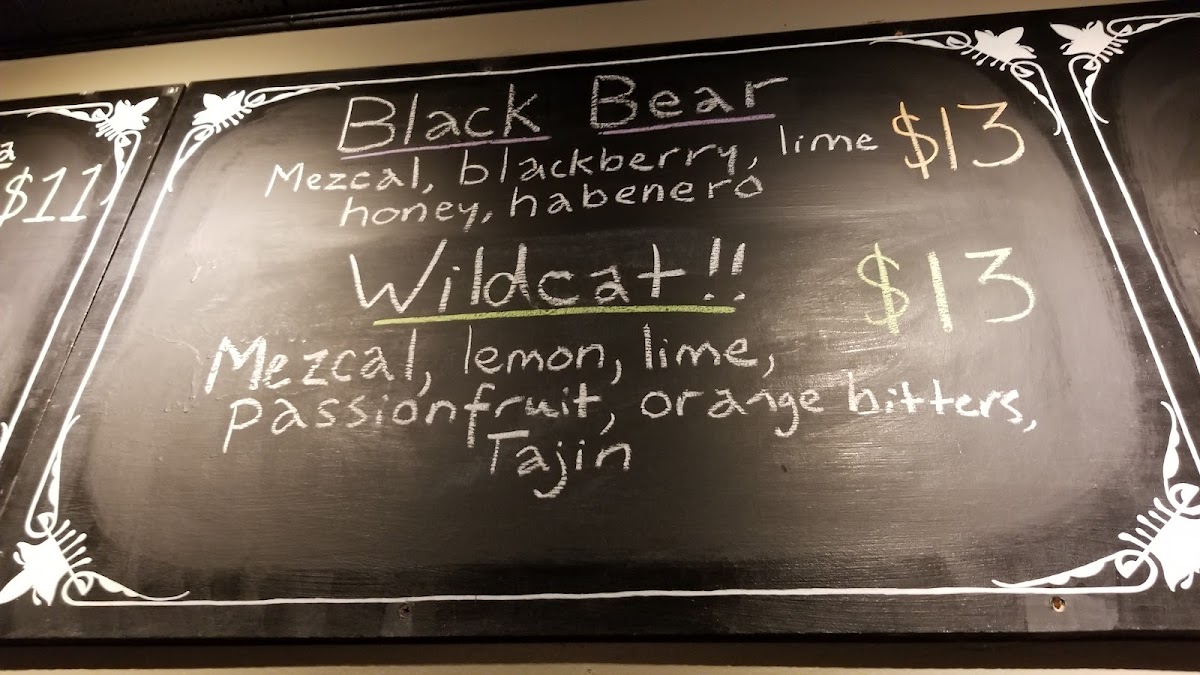 a
$11
Black Bear
Mezcal, blackberry, lime $13
honey, habenero
Wildcat!! $13
Mezcal, lemon, lime,
passionfruit, orange bitters,
Tajin